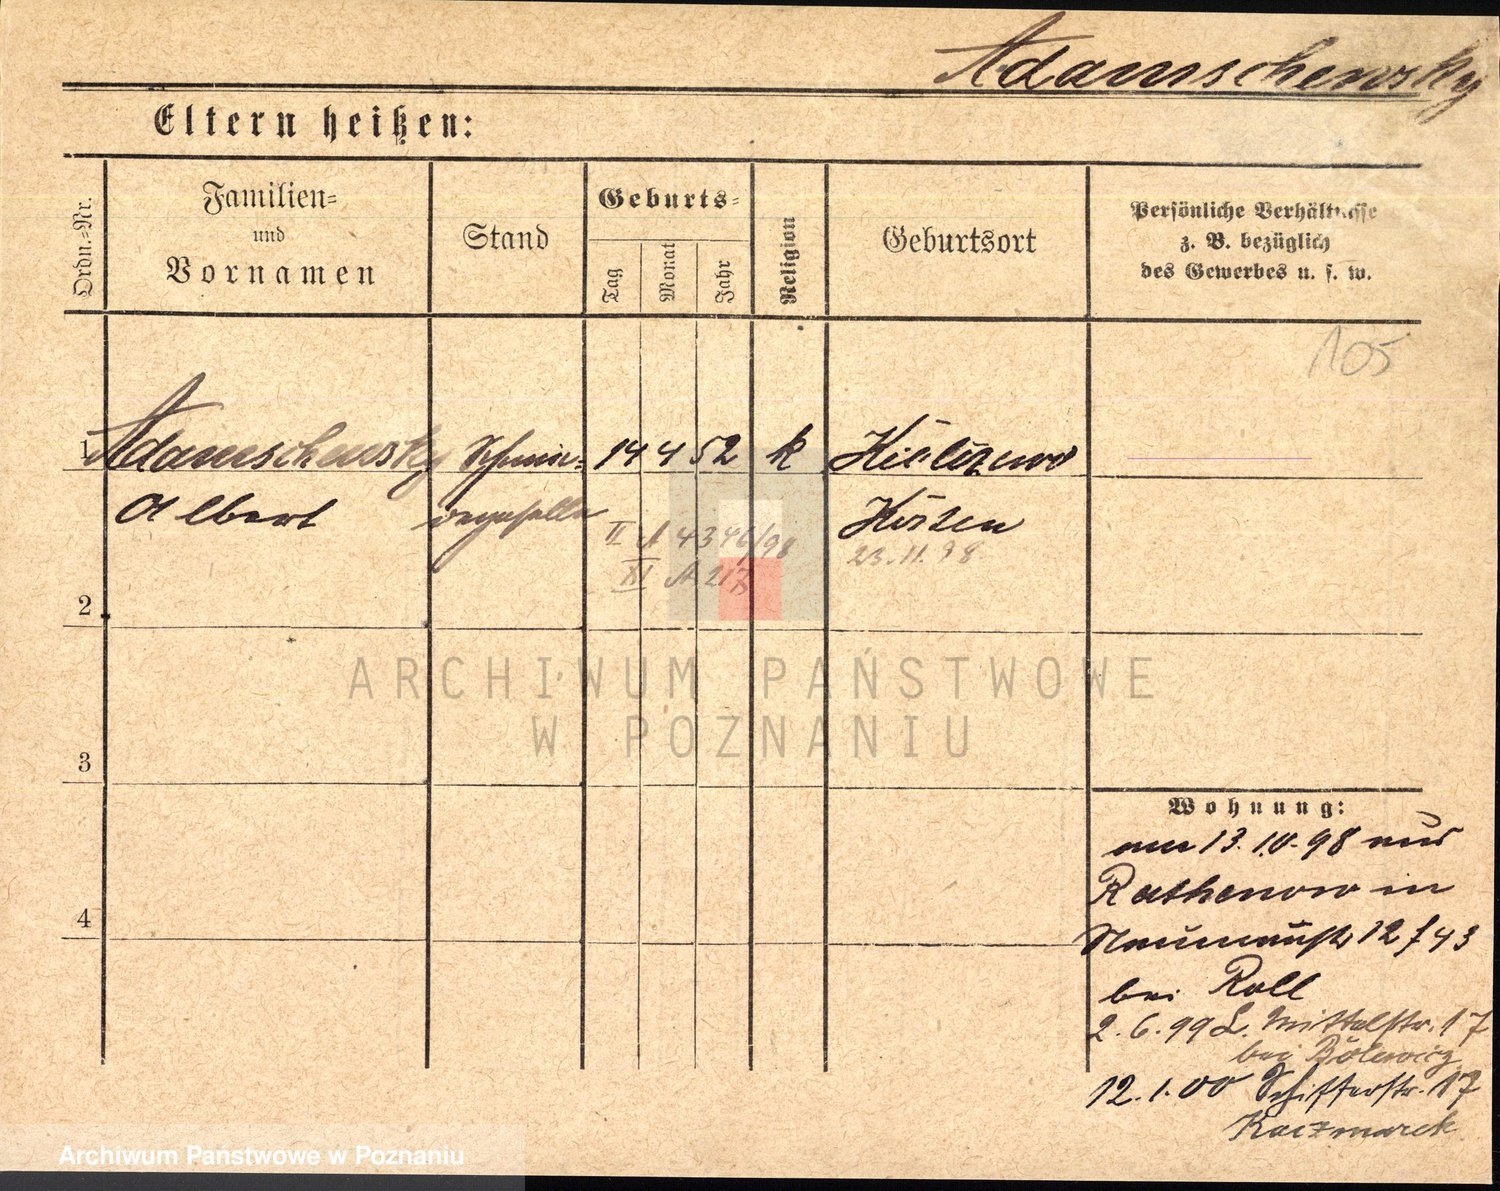 Adamschewsky
Eltern heißen:
Ordn.-Nr.
Familien-
und
Vornamen
Stand
Geburts-
Tag
Monat
Jahr
Religion
Geburtsort
Persönliche Verhältnisse
z. B. bezüglich
des Gewerbes u. s. w.
105
1 Adamschewsky Schmie- 14 4 52 k
Albert
Kosten
II A 4346/98
23.11.98
XI A 217
2
ARCHIWUM PAŃSTWOWE
W POZNANIU
3
4
Wohnung:
am 13.10.98 aus
Rathenow in
Naumannstr 12 f 43
bei Roll
2.6.99 L. Mittelstr. 17
bei
12.1.00 Schifferstr. 17
Kaczmarek
Archiwum Państwowe w Poznaniu